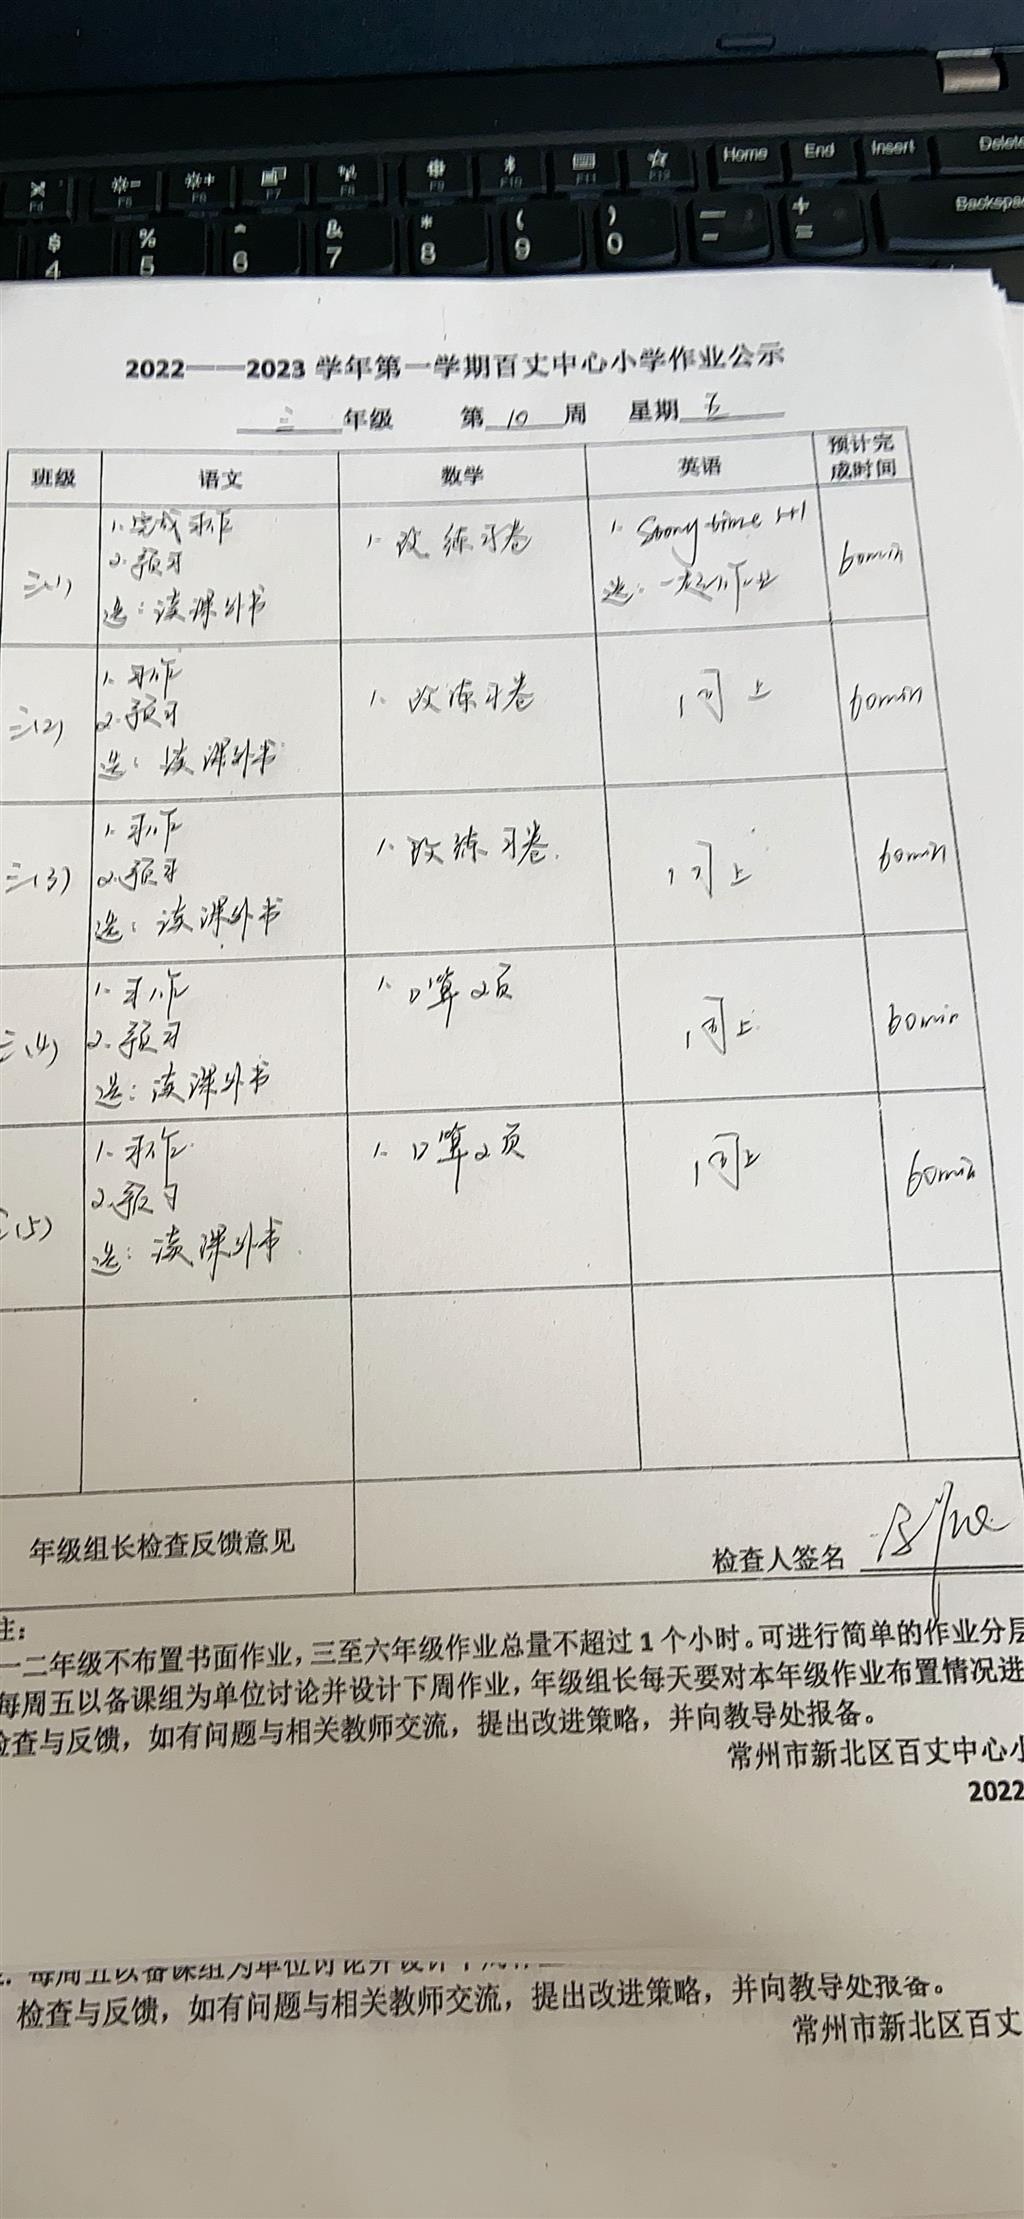 Home End Insert Delete
F4 F5 F6 F7 F8 F9 F10 F11 F12
Backspa
$ % ^ & * ( ) — +
4 5 6 7 8 9 0 - =
2022——2023 学年第一学期百丈中心小学作业公示
三 年级 第 10 周 星期 五
班级 语文 数学 英语 预计完成时间
三(1)
1. 完成习作
2. 预习
选：读课外书
1. 改练习卷
1. Story time 1+1
选：一起小作业
60min
三(2)
1. 习作
2. 预习
选：读课外书
1. 改练习卷
同上
60min
三(3)
1. 习作
2. 预习
选：读课外书
1. 改练习卷.
同上
60min
三(4)
1. 习作
2. 预习
选：读课外书
1. 口算2页
同上
60min
三(5)
1. 习作
2. 预习
选：读课外书
1. 口算2页
同上
60min
年级组长检查反馈意见
检查人签名
注：
一二年级不布置书面作业，三至六年级作业总量不超过 1 个小时。可进行简单的作业分层
每周五以备课组为单位讨论并设计下周作业，年级组长每天要对本年级作业布置情况进
检查与反馈，如有问题与相关教师交流，提出改进策略，并向教导处报备。
常州市新北区百丈中心小
2022
每周五以备课组为单位讨论并设计下
检查与反馈，如有问题与相关教师交流，提出改进策略，并向教导处报备。
常州市新北区百丈